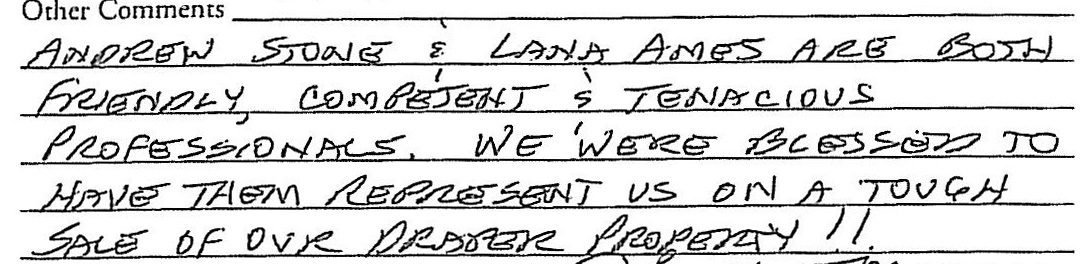 Other Comments
ANDREW STONE & LANA AMES ARE BOTH
FRIENDLY, COMPETENT & TENACIOUS
PROFESSIONALS. WE WERE BLESSED TO
HAVE THEM REPRESENT US ON A TOUGH
SALE OF OUR DRAPER PROPERTY!!